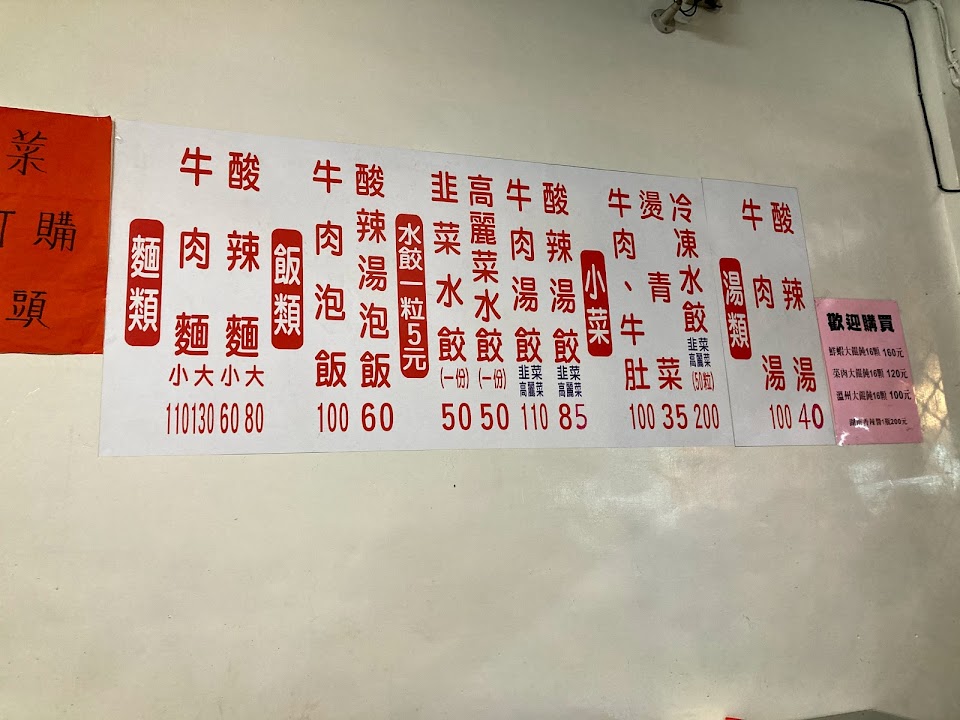 菜
訂購
頭
麵類
牛肉麵
小 大
110 130
酸辣麵
小 大
60 80
飯類
牛肉泡飯
100
酸辣湯泡飯
60
水餃一粒5元
韭菜水餃(一份)
50
高麗菜水餃(一份)
50
牛肉湯餃
韭菜
高麗菜
110
酸辣湯餃
韭菜
高麗菜
85
小菜
牛肉、牛肚
100
燙青菜
35
冷凍水餃
韭菜
高麗菜
(50粒)
200
湯類
牛肉湯
100
酸辣湯
40
歡迎購買
鮮蝦大餛飩16顆 160元
菜肉大餛飩16顆 120元
溫州大餛飩16顆 100元
香辣醬1瓶200元